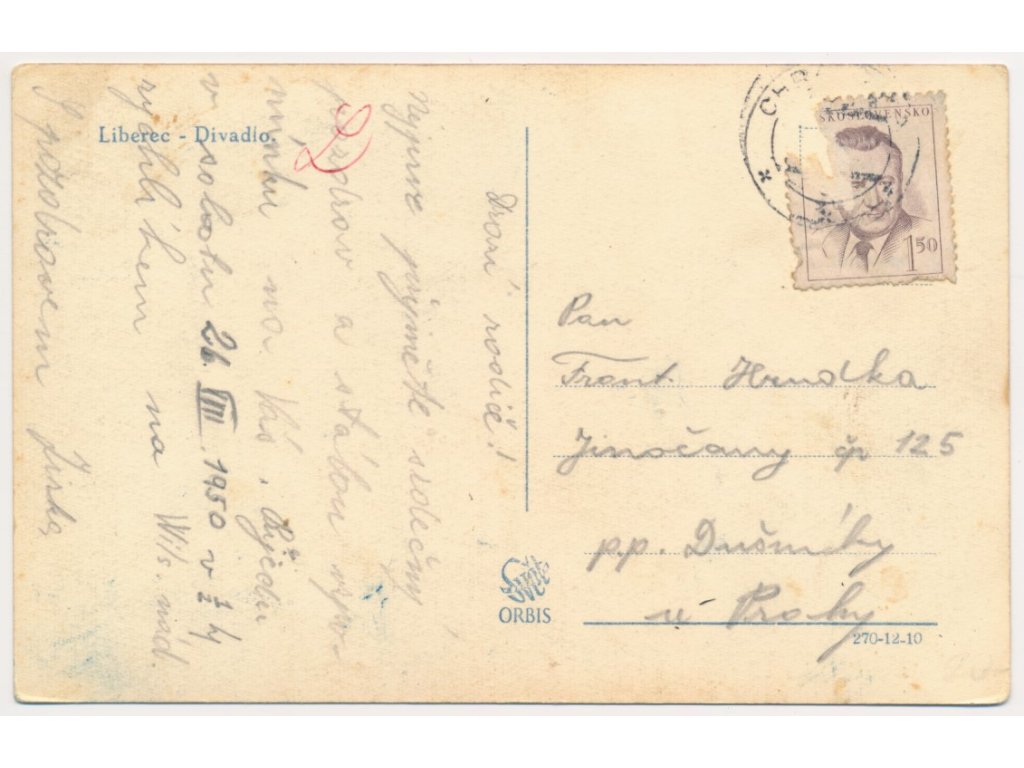 Liberec - Divadlo.
2
Drazí rodiče!
Nejprve přijměte srdečný
pozdrav a stálou vzpo-
mínku na Vás. Přijedu
v sobotu 26. VIII. 1950 v ½ 4
rychlíkem na Wils. nád.
S pozdravem Jirka
ČESKOSLOVENSKO
1 50
Pan
Frant. Hrudka
Jinočany čp 125
pp. Dušníky
u Prahy
ORBIS
270-12-10